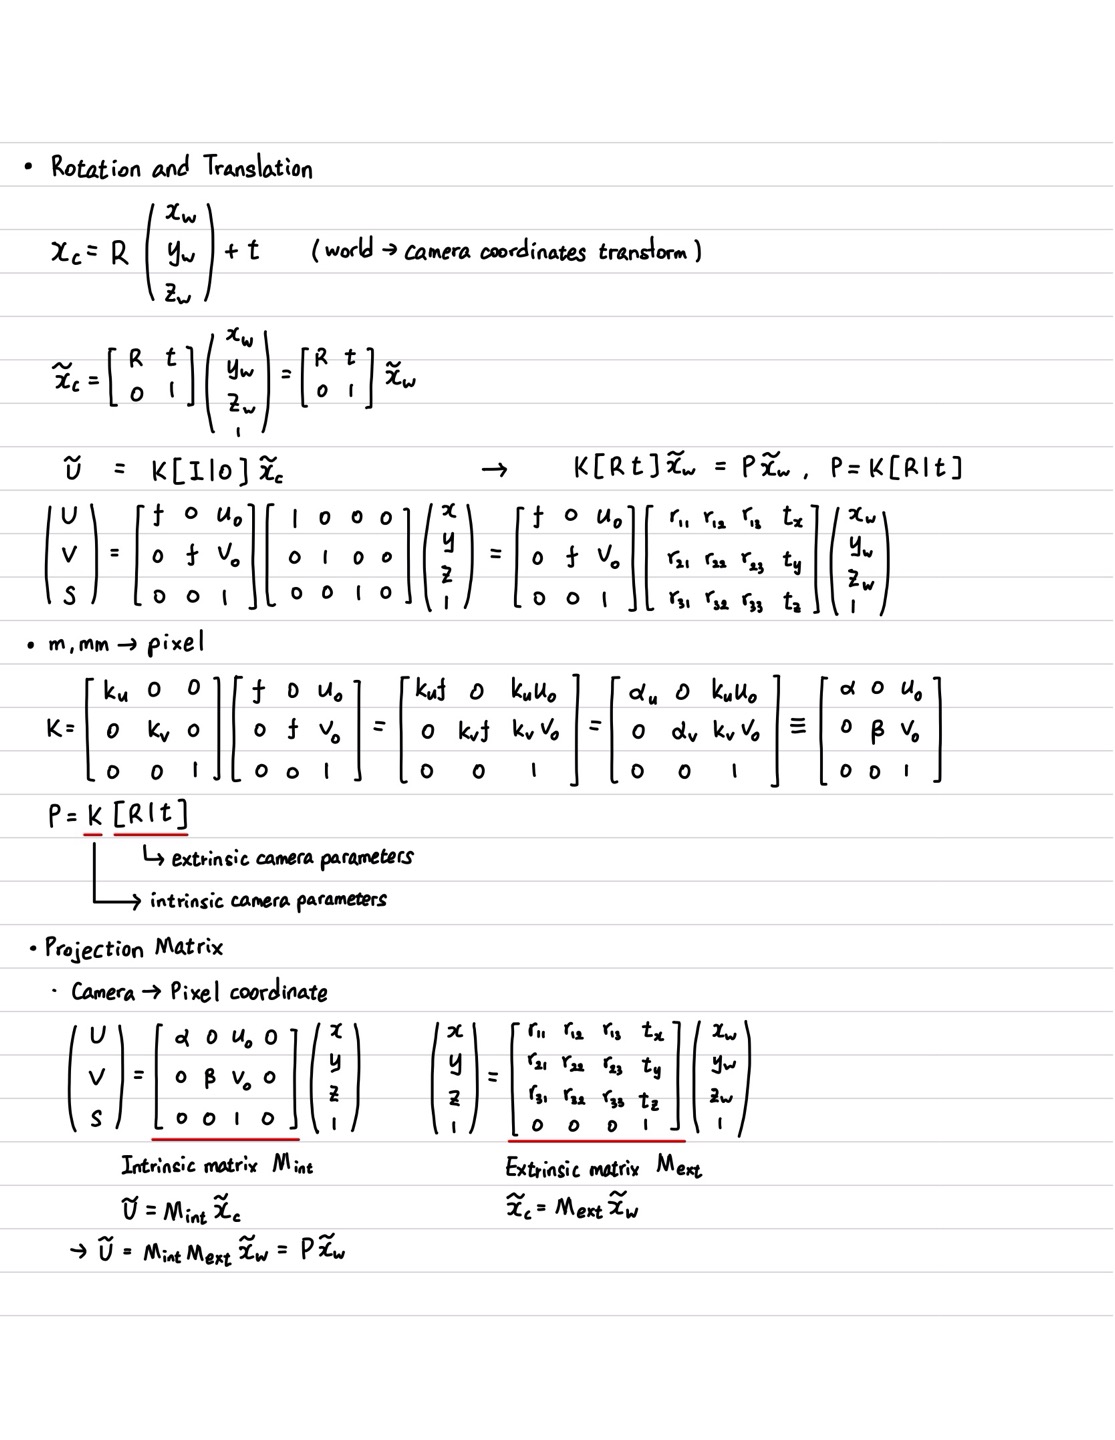 • Rotation and Translation
x_c = R (x_w y_w z_w) + t (world → camera coordinates transform)
x̃_c = [R t; 0 1] (x_w y_w z_w 1) = [R t; 0 1] x̃_w
Ũ = K[I|0] x̃_c → K[R t] x̃_w = P x̃_w, P = K[R|t]
(U V S) = [f 0 u_0; 0 f v_0; 0 0 1] [1 0 0 0; 0 1 0 0; 0 0 1 0] (x y z 1) = [f 0 u_0; 0 f v_0; 0 0 1] [r_11 r_12 r_13 t_x; r_21 r_22 r_23 t_y; r_31 r_32 r_33 t_z] (x_w y_w z_w 1)
• m, mm → pixel
K = [k_u 0 0; 0 k_v 0; 0 0 1] [f 0 u_0; 0 f v_0; 0 0 1] = [k_u f 0 k_u u_0; 0 k_v f k_v v_0; 0 0 1] = [α_u 0 k_u u_0; 0 α_v k_v v_0; 0 0 1] ≡ [α 0 u_0; 0 β v_0; 0 0 1]
P = K [R|t]
↳ extrinsic camera parameters
→ intrinsic camera parameters
• Projection Matrix
· Camera → Pixel coordinate
(U V S) = [α 0 u_0 0; 0 β v_0 0; 0 0 1 0] (x y z 1) (x y z 1) = [r_11 r_12 r_13 t_x; r_21 r_22 r_23 t_y; r_31 r_32 r_33 t_z; 0 0 0 1] (x_w y_w z_w 1)
Intrinsic matrix M_int Extrinsic matrix M_ext
Ũ = M_int x̃_c x̃_c = M_ext x̃_w
→ Ũ = M_int M_ext x̃_w = P x̃_w